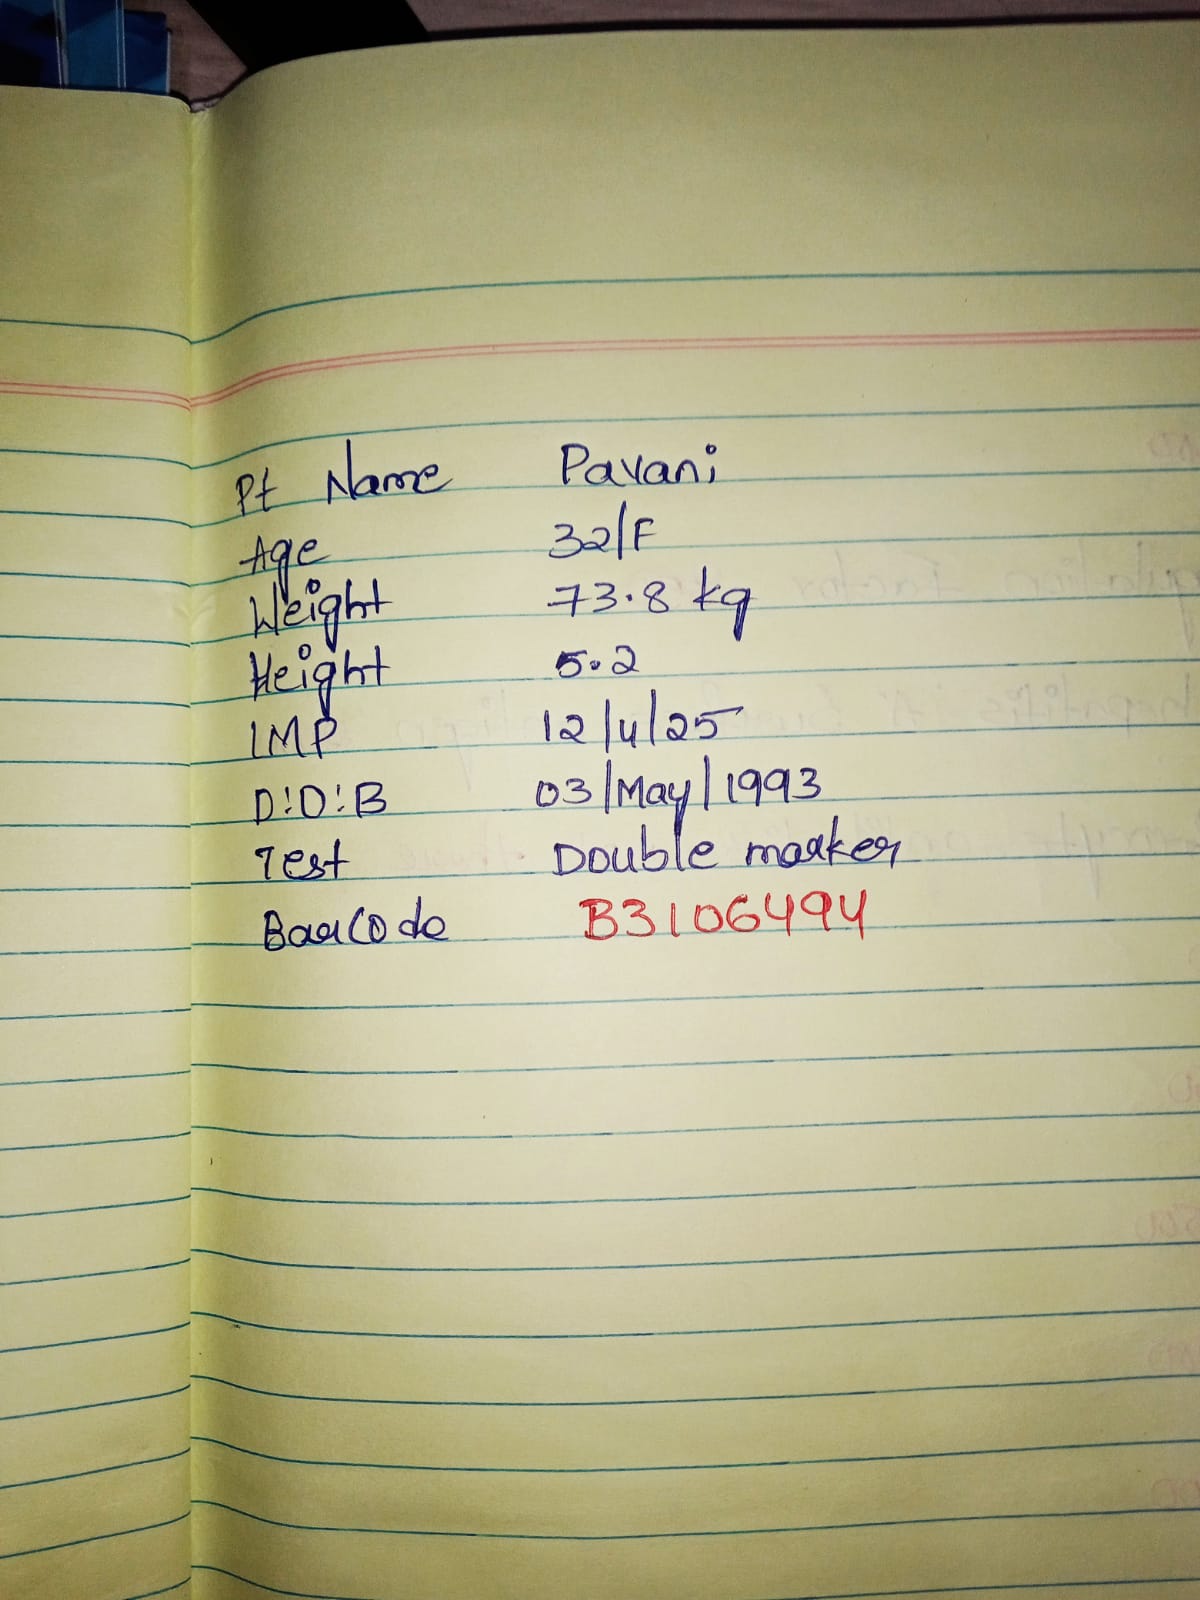 Pt Name Pavani
Age 32/F
Weight 73.8 kg
Height 5.2
IMP 12/4/25
D!O!B 03/May/1993
Test Double marker
Barcode B3106494